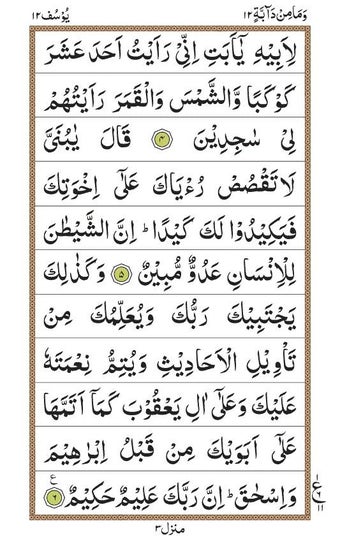 وَمَا مِنْ دَآبَّةٍ ١٢
يُوْسُف ١٢
لِاَبِيْهِ يٰٓاَبَتِ اِنِّيْ رَاَيْتُ اَحَدَ عَشَرَ
كَوْكَبًا وَّالشَّمْسَ وَالْقَمَرَ رَاَيْتُهُمْ
لِيْ سٰجِدِيْنَ ۴ قَالَ يٰبُنَيَّ
لَا تَقْصُصْ رُءْيَاكَ عَلٰٓى اِخْوَتِكَ
فَيَكِيْدُوْا لَكَ كَيْدًا ؕ اِنَّ الشَّيْطٰنَ
لِلْاِنْسَانِ عَدُوٌّ مُّبِيْنٌ ۵ وَكَذٰلِكَ
يَجْتَبِيْكَ رَبُّكَ وَيُعَلِّمُكَ مِنْ
تَاْوِيْلِ الْاَحَادِيْثِ وَيُتِمُّ نِعْمَتَهٗ
عَلَيْكَ وَعَلٰٓى اٰلِ يَعْقُوْبَ كَمَآ اَتَمَّهَا
عَلٰٓى اَبَوَيْكَ مِنْ قَبْلُ اِبْرٰهِيْمَ
وَاِسْحٰقَ ؕ اِنَّ رَبَّكَ عَلِيْمٌ حَكِيْمٌ ۶
منزل ۳